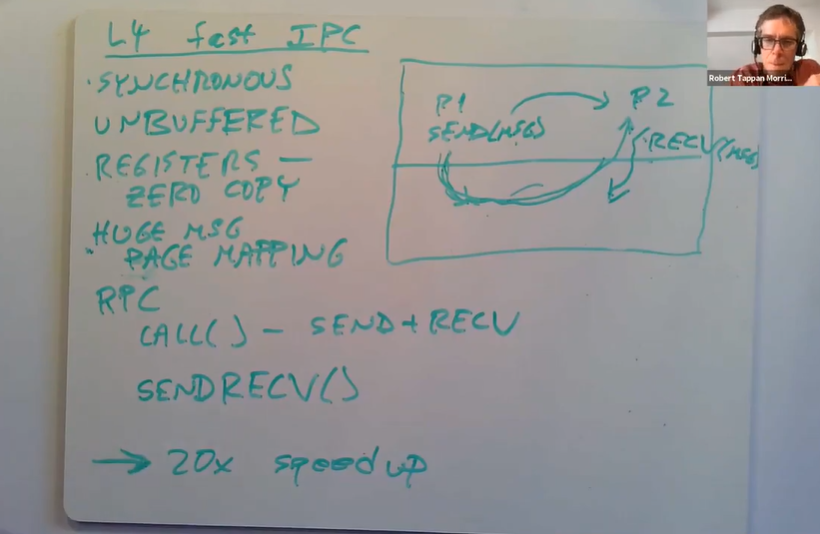 L4 fast IPC
SYNCHRONOUS
UNBUFFERED
REGISTERS —
ZERO COPY
HUGE MSG
PAGE MAPPING
RPC
CALL() — SEND+RECV
SENDRECV()
→ 20x speedup
P1
SEND(MSG)
P2
RECV(MSG)
Robert Tappan Morri...